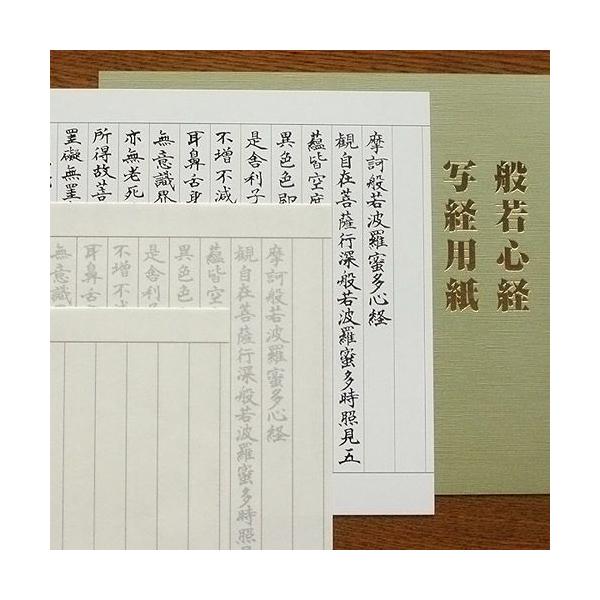 般若心経
写経用紙
摩訶般若波羅蜜多心経
觀自在菩薩行深般若波羅蜜多時照見五
蘊皆空度
異色色即
是舎利子
不増不減
耳鼻舌身
無意識界
亦無老死
所得故菩
罣礙無罣
摩訶般若波羅蜜多心経
觀自在菩薩行深般若波羅蜜多時照見
蘊皆空
異色色
是舎利
不増不
耳鼻舌
無意識